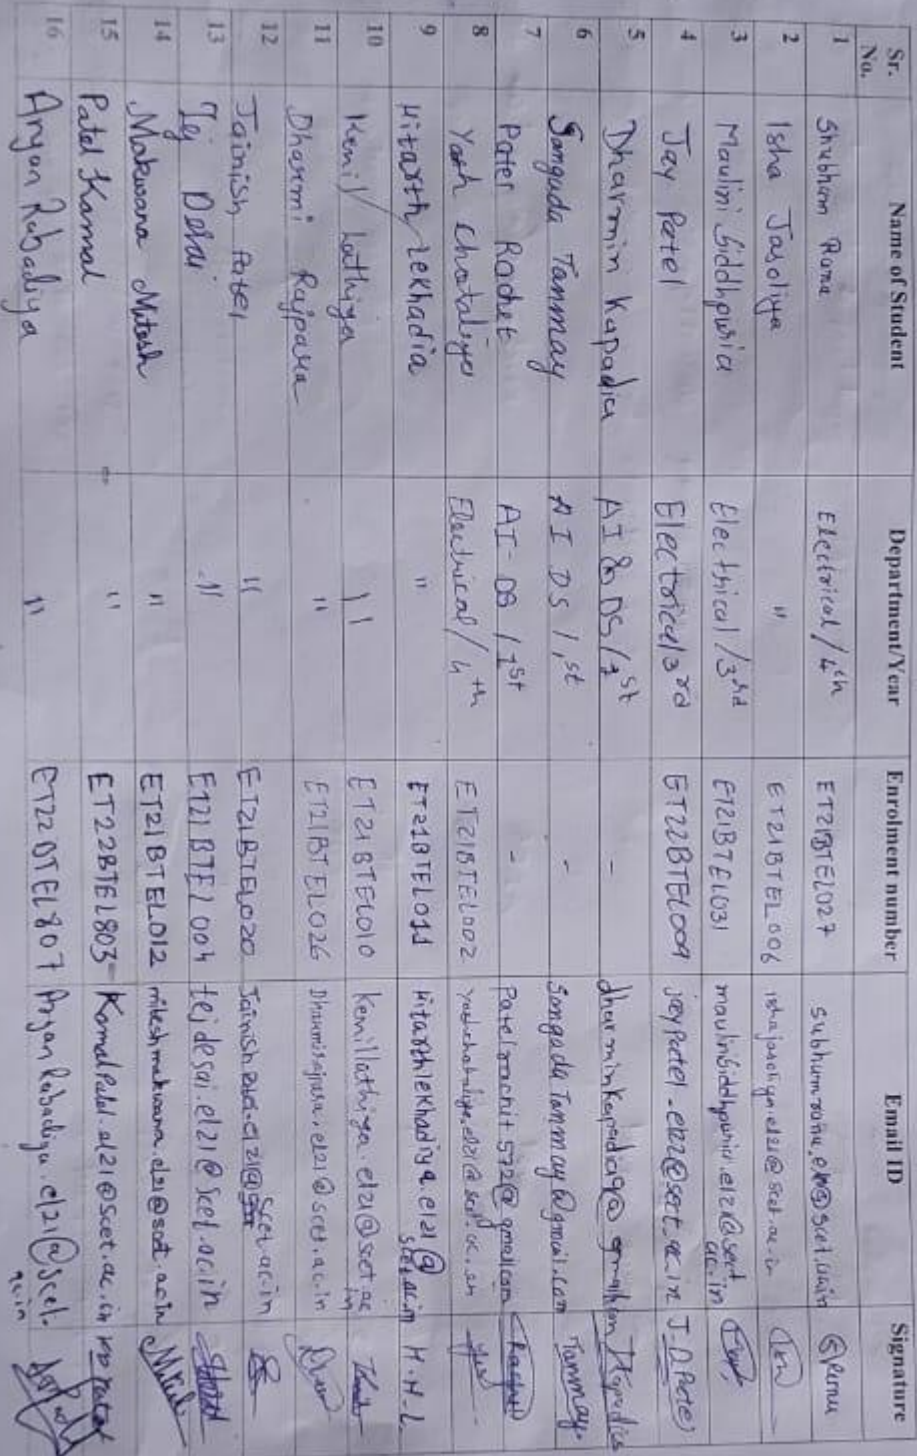 Sr. No. Name of Student Department/Year Enrolment number Email ID Signature
1 Shubham Rana Electrical/4th ET21BTEL027
2 Isha Jasoliya " ET21BTEL006 ishajasoliya.el21@scet.ac.in
3 Maulini Siddhpuria Electrical/3rd ET21BTEL031 maulinisiddhpuria.el21@scet.ac.in
4 Jay Patel Electrical 3rd ET22BTEL009 jaypatel.el22@scet.ac.in J.D.Patel
5 Dharmin Kapadia AI & DS/1st - Kapadia
6 Songada Tanmay AI DS/1st - Songada Tanmay@gmail.com Tanmay
7 Patel Rachit AI-DS/1st - Patel rachit 572@gmail.com Rachit
8 Yash Chotaliya Electrical/4th ET21BTEL002
9 Hitarth Lekhadia " ET21BTEL011 Hitarthlekhadiya.el21@scet.ac.in H.H.L
10 Kenil Lathiya " ET21BTEL010 Kenillathiya.el21@scet.ac.in
11 Dharmi Rajpara " ET21BTEL026 Dharmirajpara.el21@scet.ac.in
12 Jainish Patel " ET21BTEL020 Jainish Patel.el21@scet.ac.in
13 Tej Desai " ET21BTEL004 tejdesai.el21@scet.ac.in
14 Makwana Mitesh " ET21BTEL012 miteshmakwana.el21@scet.ac.in
15 Patel Kamal " ET22BTEL803 KamalPatel.el21@scet.ac.in
16 Aryan Rabadiya " ET22DTEL807 Aryan Rabadiya.el21@scet.ac.in